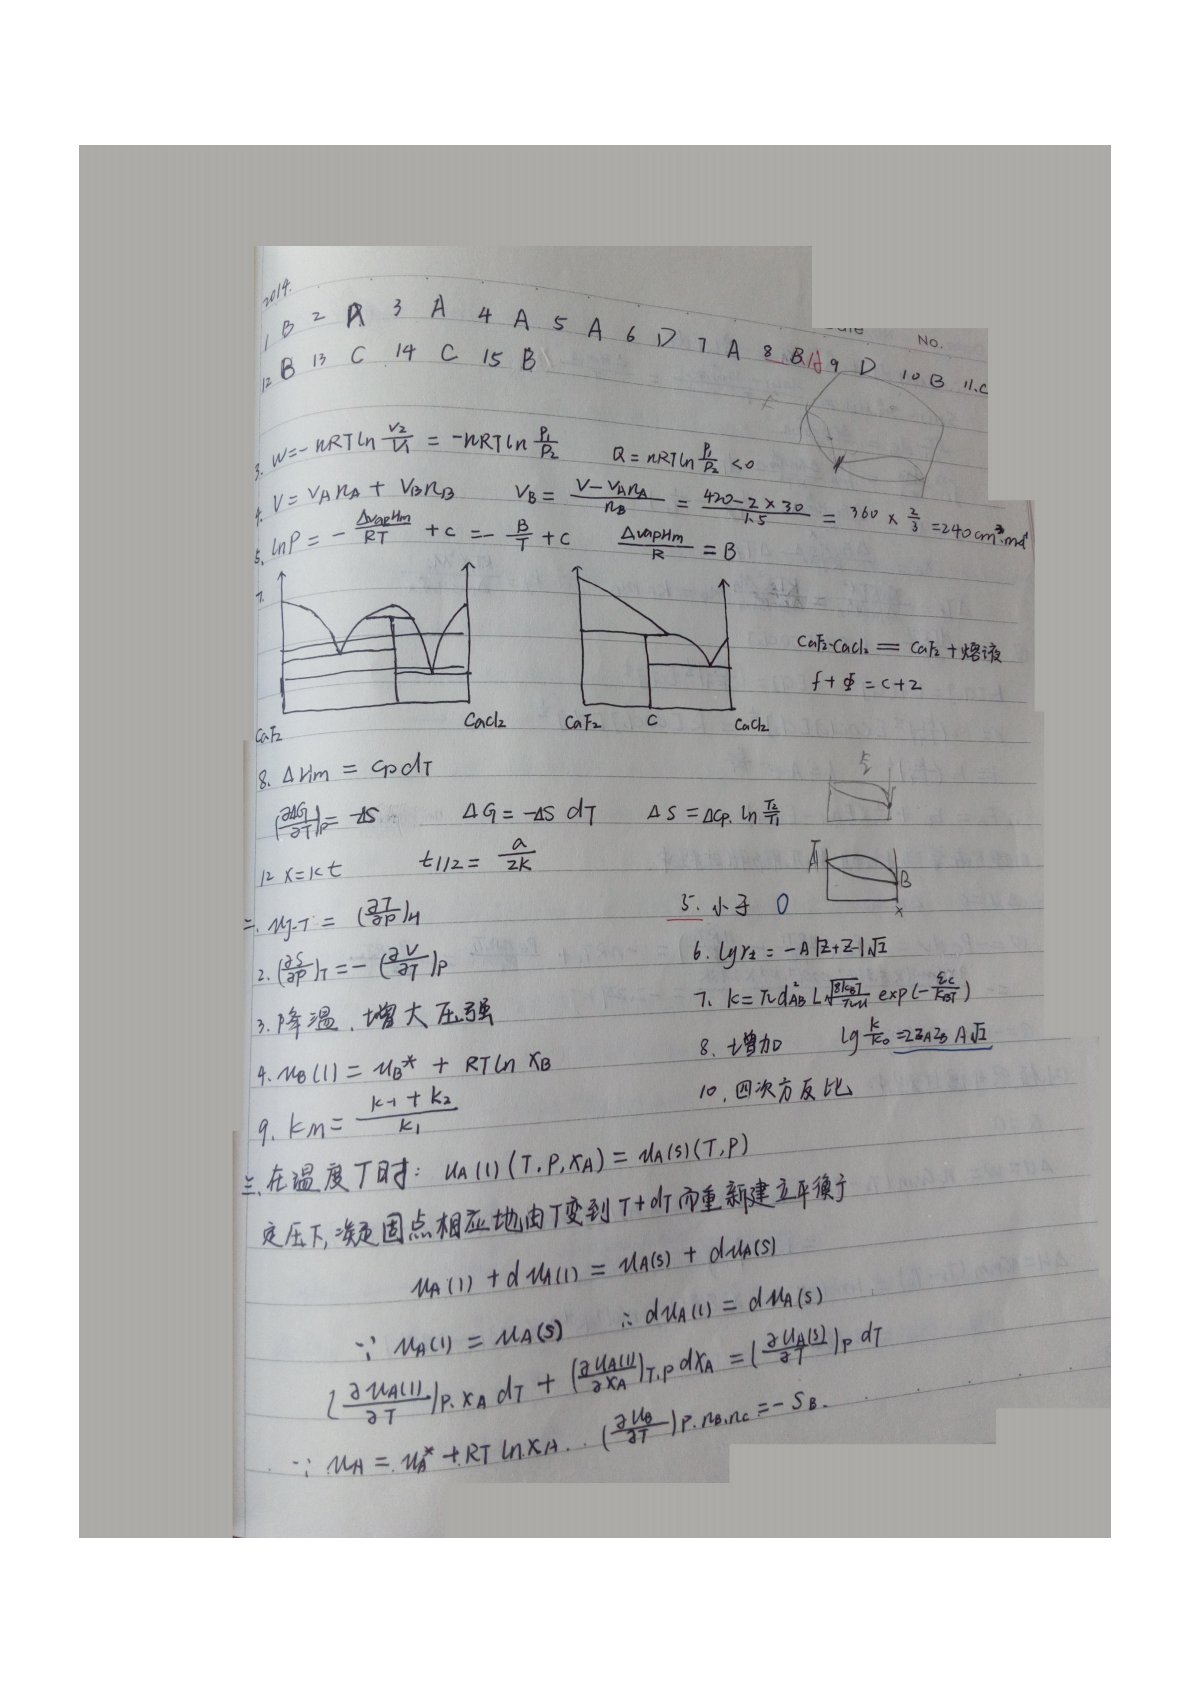 2014.
1 B 2 A 3 A 4 A 5 A 6 D 7 A 8 B A 9 D 10 B 11.C
12 B 13 C 14 C 15 B
No.
3. W=-nRTln V₂/V₁ = -nRTln P₁/P₂ Q=nRTln P₁/P₂ <0
4. V=VAnA + VBnB VB= (V-VAnA)/nB = (420-2×30)/1.5 = 360 × 2/3 =240cm³·mol⁻¹
5. lnP = - ΔvapHm/RT + C = - B/T + C ΔvapHm/R = B
7.
CaF₂·CaCl₂ = CaF₂ + 熔液
f+Φ=C+2
CaF₂ CaCl₂ CaF₂ C CaCl₂
8. ΔHm = CpdT
(∂ΔG/∂T)P = -ΔS ΔG = -ΔS dT ΔS = ΔCp. ln T₂/T₁
12 x=kt t1/2 = a/2k
T A B x
二. μJ-T = (∂T/∂P)H
5. 小于 0
2. (∂S/∂P)T = - (∂V/∂T)P
6. lgγ± = -A|Z+Z-|√I
3. 降温、增大压强
7. k=πd²AB L√(8kBT/πμ) exp(-εc/kBT)
8. 增加 lg k/k₀ =2ZAZB A√I
4. μB(l) = μB* + RTln xB
10. 四次方反比
9. km = (k-1 + k₂)/k₁
三. 在温度T时: μA(l)(T,P,xA) = μA(s)(T,P)
定压下,凝固点相应地由T变到T+dT而重新建立平衡于
μA(l) + dμA(l) = μA(s) + dμA(s)
∵ μA(l) = μA(s) ∴ dμA(l) = dμA(s)
(∂μA(l)/∂T)P.xA dT + (∂μA(l)/∂xA)T,P dxA = (∂μA(s)/∂T)P dT
∵ μA = μA* + RT ln xA. (∂μB/∂T)P.nB.nC = -SB.